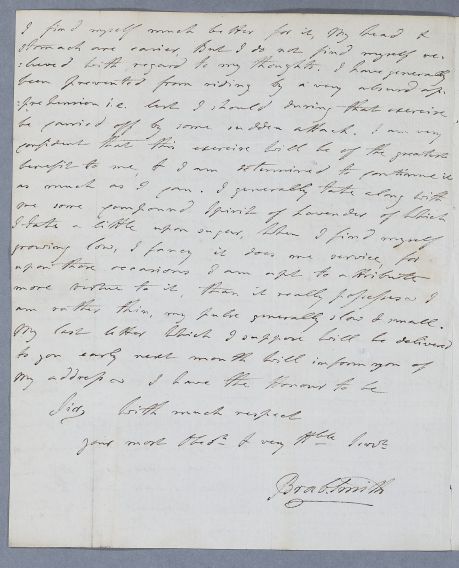 I find myself much better for it, My head &
stomach are easier, But I do not find myself re=
:lieved with regard to my thoughts. I have generally
been prevented from riding by a very absurd ap:
:prehension i.e. lest I should during that exercise,
be carried off by some sudden attack. I am very
confident that this exercise will be of the greatest
benefit to me, & I am determined to continue it
as much as I can. I generally take along with
me some compound Spirit of Lavender of which
I take a little upon sugar, when I find myself
growing low, I fancy it does me service, for
upon those occasions I am apt to attribute
more virtue to it, than it really possesses I
am rather thin, my pulse generally slow & small.
My last letter which I suppose will be delivered
to you early next month will inform you of
my address I have the Honour to be
Sir, with much respect
your most Obedt. & very Hble Servt.
Brab. Smith